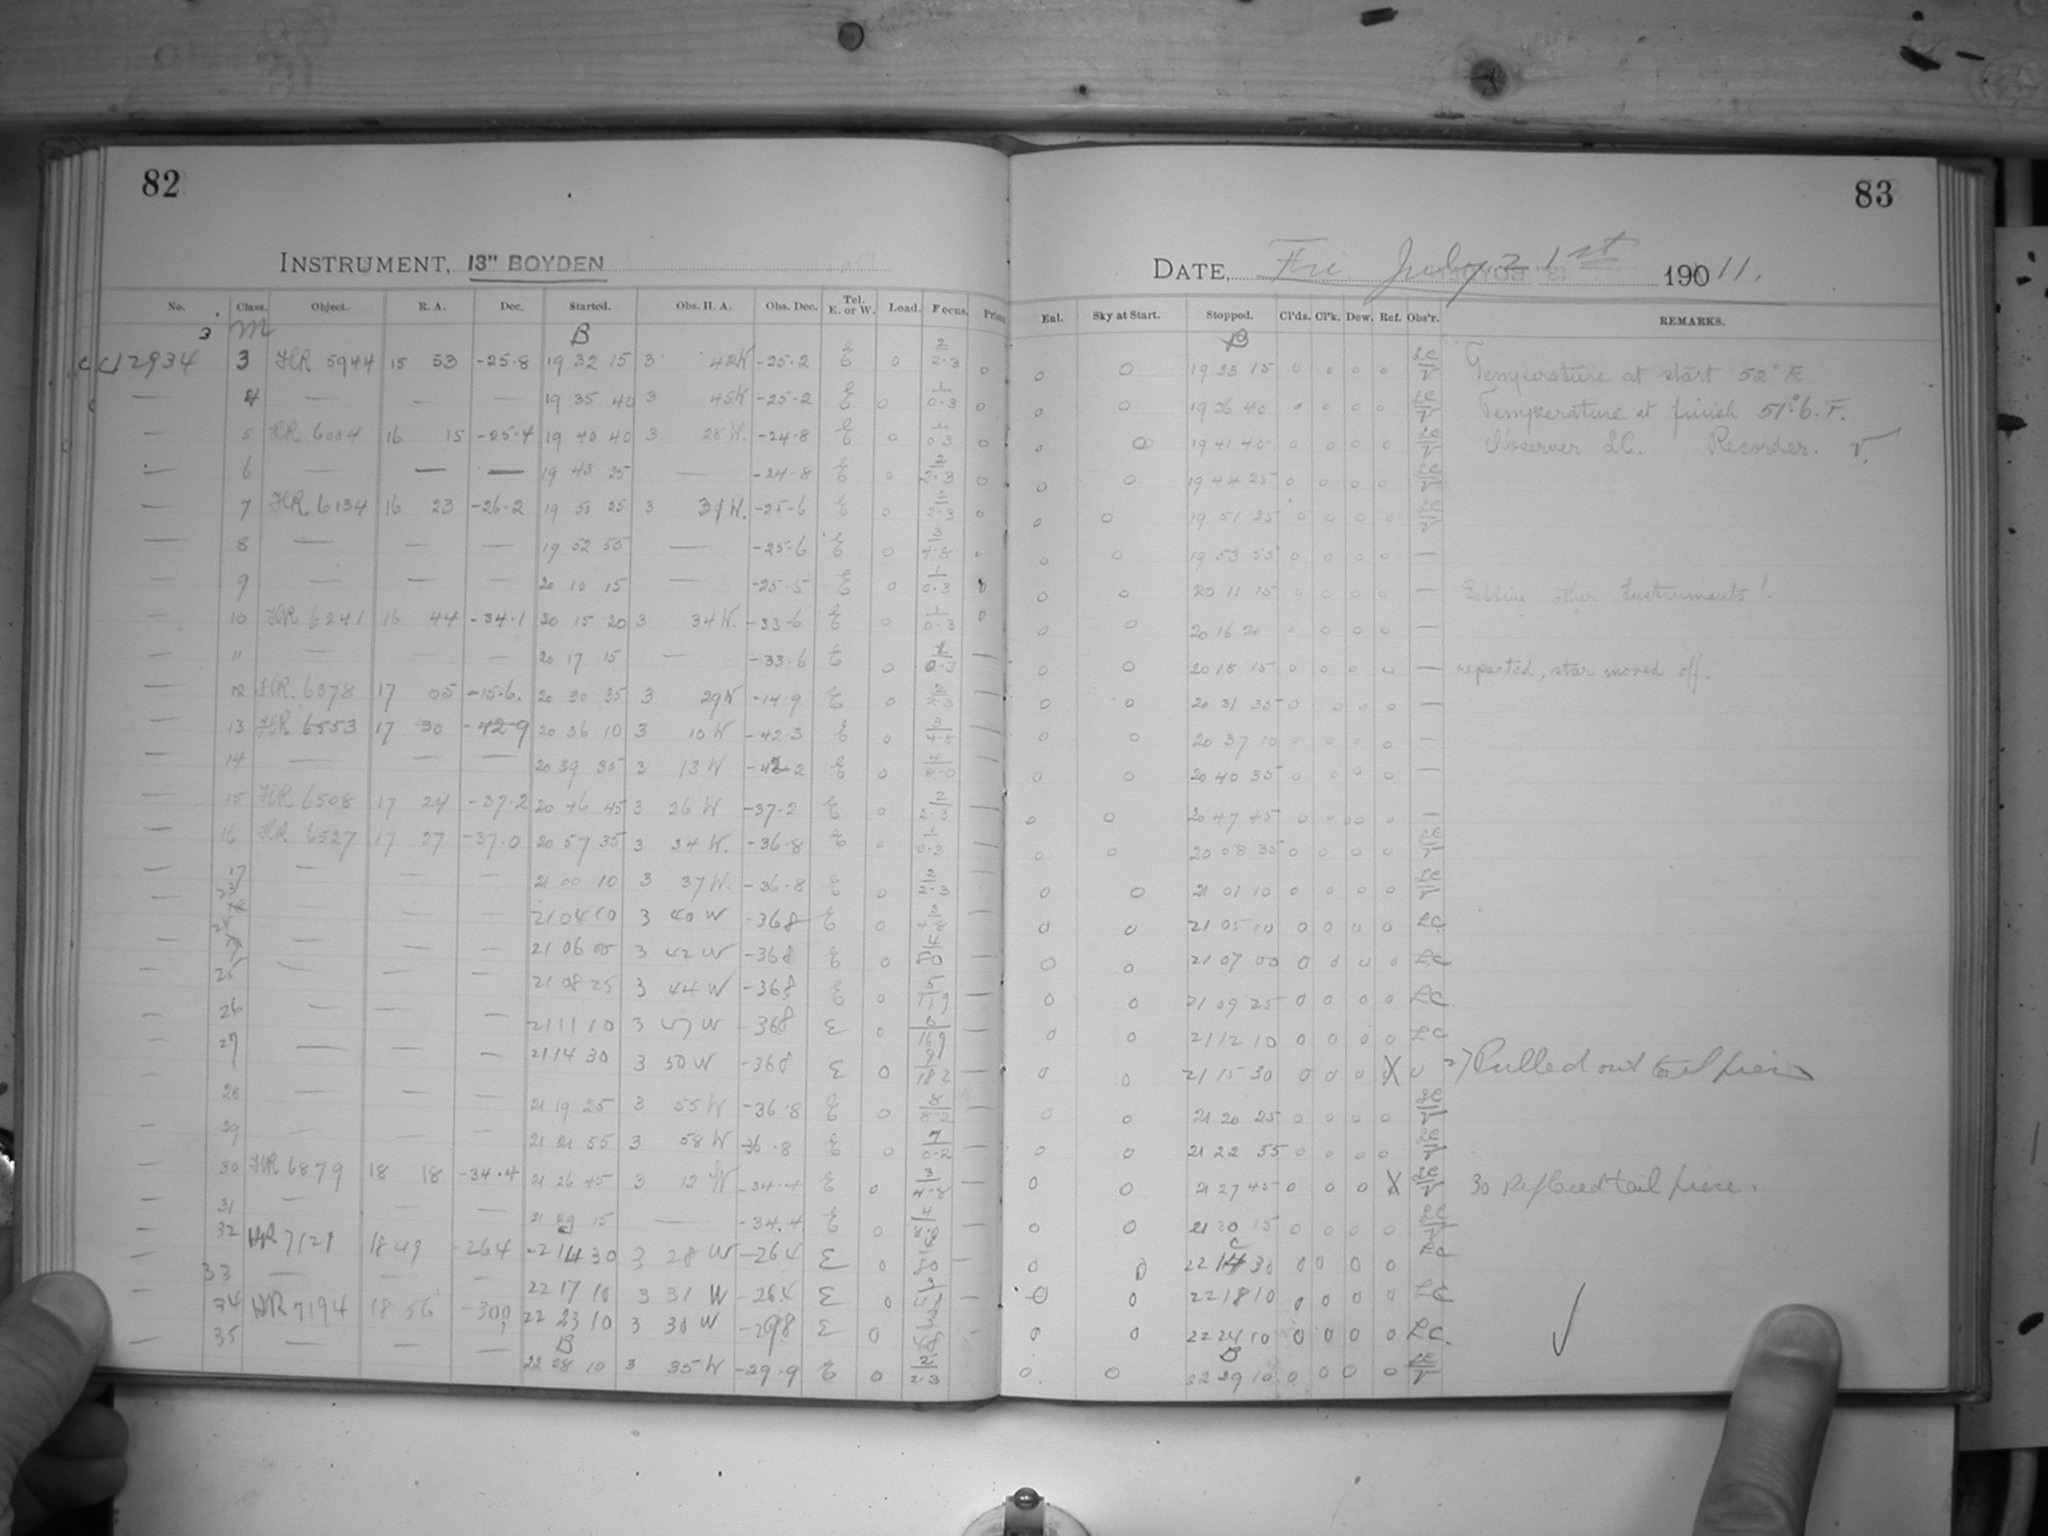 82
INSTRUMENT, 13" BOYDEN
No. Class. Object. R. A. Dec. Started. Obs. H. A. Obs. Dec. Tel. E. or W. Load. Focus.
3 m B
12934 3 HR 5944 15 53 -25.8 19 32 15 3 42W -25.2 E 0 2 2.3 0
— 4 — — — 19 35 40 3 45W -25.2 E 0 1 0.3 0
— 5 HR 6084 16 15 -25.4 19 40 40 3 28W. -24.8 E 0 1 0.3 0
— 6 — — — 19 43 25 — -24.8 E 0 2 2.3 0
— 7 HR. 6134 16 23 -26.2 19 50 25 3 31W. -25.6 E 0 2 2.3 0
— 8 — — — 19 52 55 — -25.6 E 0 3 4.8
— 9 — — — 20 10 15 — -25.5 E 0 1 0.3
— 10 HR 6241 16 44 -34.1 20 15 20 3 34W. -33.6 E 0 1 0.3 0
— 11 — — — 20 17 15 — -33.6 E 0 0.3 —
— 12 HR. 6378 17 05 -15.6. 20 30 35 3 29W -14.9 E 0 2 2.3 —
— 13 HR 6553 17 30 -42.9 20 36 10 3 10W -42.3 E 0 3 4.8 —
— 14 — — — 20 39 35 3 13W -42.2 E 0 —
— 15 HR 6508 17 24 -37.2 20 46 45 3 26 W -37.2 E 0 2 2.3 —
— 16 HR 6527 17 27 -37.0 20 57 35 3 34 W. -36.8 E 0 1 0.3 —
— 17 — — — 21 00 10 3 37W. -36.8 E 0 2 2.3 —
— — — — 21 04 10 3 40 W -368 E 0 —
— — — — 21 06 00 3 42 W -368 E 0 4 80 —
— 25 — — — 21 08 25 3 44 W -368 E 0 5 119 —
— 26 — — — 21 11 10 3 47 W -368 E 0 6 169 —
— 27 — — — 21 14 30 3 50 W -368 E 0 182 —
— 28 — — — 21 19 25 3 55 W -36.8 E 0 8 8.2 —
— 29 — — — 21 21 55 3 58 W -36.8 E 0 7 0.2 —
— 30 HR 6879 18 18 -34.4 21 26 45 3 12 W -34.4 E 0 3 4.8 —
— 31 — — — 21 29 15 — -34.4 E 0 4 —
— 32 HR 7121 18 49 -264 C 22 14 30 3 28 W -264 E 0 80 —
— 33 — — — 22 17 10 3 31 W -264 E 0 —
— 34 HR 7194 18 56 -300 22 23 10 3 30 W -298 E 0
— 35 — — — B 22 28 10 3 35 W -29.9 E 0 2 2.3 —
83
DATE, Fri. July 21st 190 11.
Sky at Start. Stopped. Cl'ds. Cl'k. Dew. Ref. Obs'r. REMARKS.
B
0 0 19 33 15 0 0 0 0 LC Temperature at start 52° F.
0 0 19 36 40 0 0 0 0 LC Temperature at finish 51°.6. F.
0 0 19 41 40 0 0 0 0 LC Observer LC. Recorder. V.
0 0 19 44 25 0 0 0 0 LC
0 0 19 51 25 0 0 0 0 LC
0 0 19 53 55 0 0 0 0 —
0 0 20 11 15 0 0 0 0 — Setting other Instruments!
0 0 20 16 20 0 0 0 0 —
0 0 20 18 15 0 0 0 0 — repeated, star moved off.
0 0 20 31 35 0 0 0 0 —
0 0 20 37 10 0 0 0 0 —
0 0 20 40 35 0 0 0 0 —
0 0 20 47 45 0 0 0 0 —
0 0 20 58 35 0 0 0 0 LC
0 0 21 01 10 0 0 0 0 LC
0 0 21 05 10 0 0 0 0 LC
0 0 21 07 00 0 0 0 0 LC
0 0 21 09 25 0 0 0 0 LC
0 0 21 12 10 0 0 0 0 LC
0 0 21 15 30 0 0 0 X 27 Pulled out tail piece
0 0 21 20 25 0 0 0 0 LC
0 0 21 22 55 0 0 0 0 LC
0 0 21 27 45 0 0 0 X LC 30 Replaced tail piece.
0 0 21 30 15 0 0 0 0 LC
C
0 0 22 14 30 0 0 0 0 LC
0 0 22 18 10 0 0 0 0 LC
0 0 22 24 10 0 0 0 0 LC.
B
0 0 22 29 10 0 0 0 0 LC